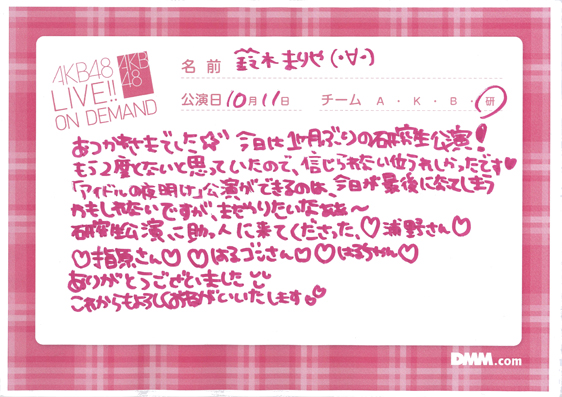 AKB48
LIVE!!
ON DEMAND
AKB
48
名前 鈴木まりや(・∀・)
公演日 10月11日 チーム A・K・B・研
おつかれさまでした☆ 今日は1ヶ月ぶりの研究生公演!
もう2度とないと思っていたので、信じられない位うれしかったです♥
「アイドルの夜明け」公演ができるのは、今日が最後になってしまう
かもしれないですが、またやりたいなぁぁ〜
研究生公演に助っ人に来てくださった、♡浦野さん♡
♡指原さん♡ ♡はるごンさん♡ ♡はるちゃん♡
ありがとうございました
これからもよろしくおねがいいたします
DMM.com